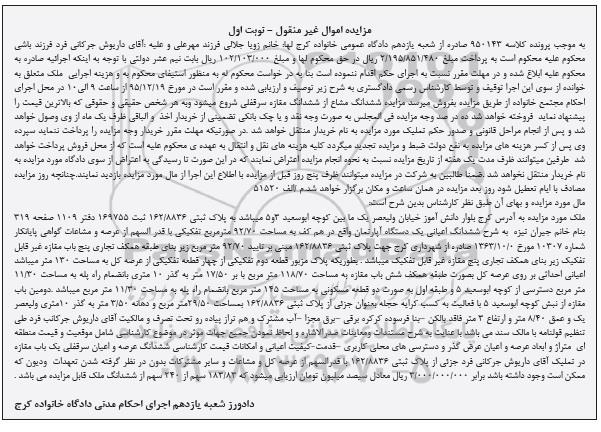 مزایده اموال غیر منقول - نوبت اول
به موجب پرونده کلاسه ۹۵۰۱۴۳ صادره از شعبه یازدهم دادگاه عمومی خانواده کرج لها: خانم زویا جلالی فرزند مهرعلی و علیه :آقای داریوش جرکانی فرد فرزند باشی
محکوم علیه محکوم است به پرداخت مبلغ ۲/۱۹۵/۸۵۱/۴۸۰ ریال در حق محکوم لها و مبلغ ۱۰۲/۱۰۳/۰۰۰ ریال بابت نیم عشر دولتی با توجه به اینکه اجرائیه صادره به
محکوم علیه ابلاغ شده و در مهلت مقرر نسبت به اجرای حکم اقدام ننموده است بنا به در خواست محکوم له به منظور استیفای محکوم به و هزینه اجرایی ملک متعلق به
خوانده از سوی این اجرا توقیف و توسط کارشناس رسمی دادگستری به شرح زیر توصیف و ارزیابی شده و مقرر است در مورخ ۹۵/۱۲/۱۹ از ساعت ۹ الی ۱۰ در محل اجرای
احکام مجتمع خانواده از طریق مزایده بفروش میرسد مزایده ششدانگ مشاع از ششدانگ مغازه سرقفلی شروع میشود وبه هر شخص حقیقی و حقوقی که بالاترین قیمت را
پیشنهاد نماید فروخته خواهد شد. ده در صد وجه مزایده فی المجلس به صورت وجه نقد و یا چک بانکی تضمینی از خریدار اخذ و الباقی ظرف یک ماه از وی وصول خواهد
شد و پس از انجام مراحل قانونی و صدور حکم تملیک مورد مزایده به نام خریدار منتقل خواهد شد .در صورتیکه مهلت مقرر خریدار وجه مزایده را پرداخت ننماید سپرده
وی پس از کسر هزینه های مزایده به نفع دولت ضبط و مزایده تجدید میگردد کلیه هزینه های نقل و انتقال به عهده ی محکوم علیه است که از محل فروش پرداخت خواهد
شد طرفین میتوانند ظرف مدت یک هفته از تاریخ مزایده نسبت به نحوه انجام مزایده اعتراض نمایند که در این صورت تا رسیدگی به اعتراض از سوی دادگاه مورد مزایده به
نام خریدار منتقل نخواهد شد .ضمنا طالبین به شرکت در مزایده میتوانند ظرف پنج روز قبل از مزایده با اطلاع این اجرا از مال مورد مزایده بازدید نمایند.چنانچه روز مزایده
مصادف با ایام تعطیل شود روز بعد مزایده در همان ساعت و مکان برگزار خواهد شد.م الف ۵۱۵۲۰
مال مورد مزایده و بهای آن طبق نظر کارشناس بدین شرح است:
ملک مورد مزایده به آدرس کرج بلوار دانش آموز خیابان ولیعصر یک ما بین کوچه ابوسعید ۳و۵ میباشد به پلاک ثبتی ۱۶۲/۸۸۳۶ ثبت ۱۶۹۷۵۵ دفتر ۱۱۰۹ صفحه ۳۱۹
بنام خانم جیران تیزه به شرح ششدانگ اعیانی یک دستگاه آپارتمان واقع در هم کف به مساحت ۹۲/۷۰ مترمربع تفکیکی با قدر السهم از عرصه و مشاعات گواهی پایانکار
شماره ۱۰۳۰۷ مورخ ۱۳۶۳/۱۰/۰ صادره از شهرداری کرج جهت پلاک ثبتی ۱۶۲/۸۸۳۶ مبنی بر تایید ۹۲/۷۰ متر مربع زیر بنای طبقه همکف تجاری پنج باب مغازه غیر قابل
تفکیک زیر بنای همکف تجاری پنج مغازه غیر قابل تفکیک میباشد. بطوریکه پلاک مزبور قطعه دوم تفکیکی از چهار قطعه تفکیکی از عرصه کل به مساحت ۱۳۰ متر میباشد
اعیانی احداثی بر روی عرصه کل بصورت طبقه همکف شش باب مغازه به مساحت ۱۱۸/۷۰ متر مربع با بر ۱۷/۵۰ متر به گذر ۱۰ متری بانضمام راه پله به مساحت ۱۱/۳۰
متر مربع دسترسی از کوچه ابوسعید ۵ و طبقه اول به صورت دو قطعه مسکونی به مساحت ۱۴۵ متر مربع بانضمام راه پله به مساحت ۱۱/۳۰ متر مربع میباشد .دومین باب
مغازه از نبش کوچه ابوسعید ۵ با فعالیت به کسب کرایه حجله بعنوان جزئی از پلاک ثبتی ۱۶۲/۸۸۳۶ بمساحت ۲۹/۵۰متر مربع و دهانه ۳/۵۰ متر به گذر ۱۰متری ولیعصر
یک و عمق ۸/۴۰ متر و ارتفاع ۳ متر فاقد بالکن –بنا فرسوده کرکره برقی –برق مجزا –آب مشترک و هم تراز پیاده رو تحت تصرف و مالکیت آقای داریوش جرکانب فرد طی
تنظیم قولنامه با مالک سند می باشد با عنایت به شرح مستندات ومعاینات صدرالاشاره و لحاظ نمودن جمیع جهات موثر در موضوع کارشناس شامل موقعیت و قیمت منطقه
ای متراژ و ابعاد عرصه و اعیان عرض گذر و دسترسی های محلی کاربری –قدمت–کیفیت اعیانی و امکانات قیمت کارشناسی ششدانگ عرصه و اعیان سرقفلی یک باب مغازه
در تملیک آقای داریوش جرکانی فرد جزئی از پلاک ثبتی ۱۶۲/۸۸۳۶ با قدرالسهم از عرصه کل و مشاعات و سایر مشترکات بدون در نظر گرفته شدن تعهدات ودیون که
ممکن است وجود داشته باشد برابر ۳/۰۰۰/۰۰۰/۰۰۰ ریال معادل سیصد میلیون تومان ارزیابی میشود که ۱۸۳/۸۳ سهم از ۲۴۰ سهم از ششدانگ ملک قابل مزایده می باشد .
دادورز شعبه یازدهم اجرای احکام مدنی دادگاه خانواده کرج